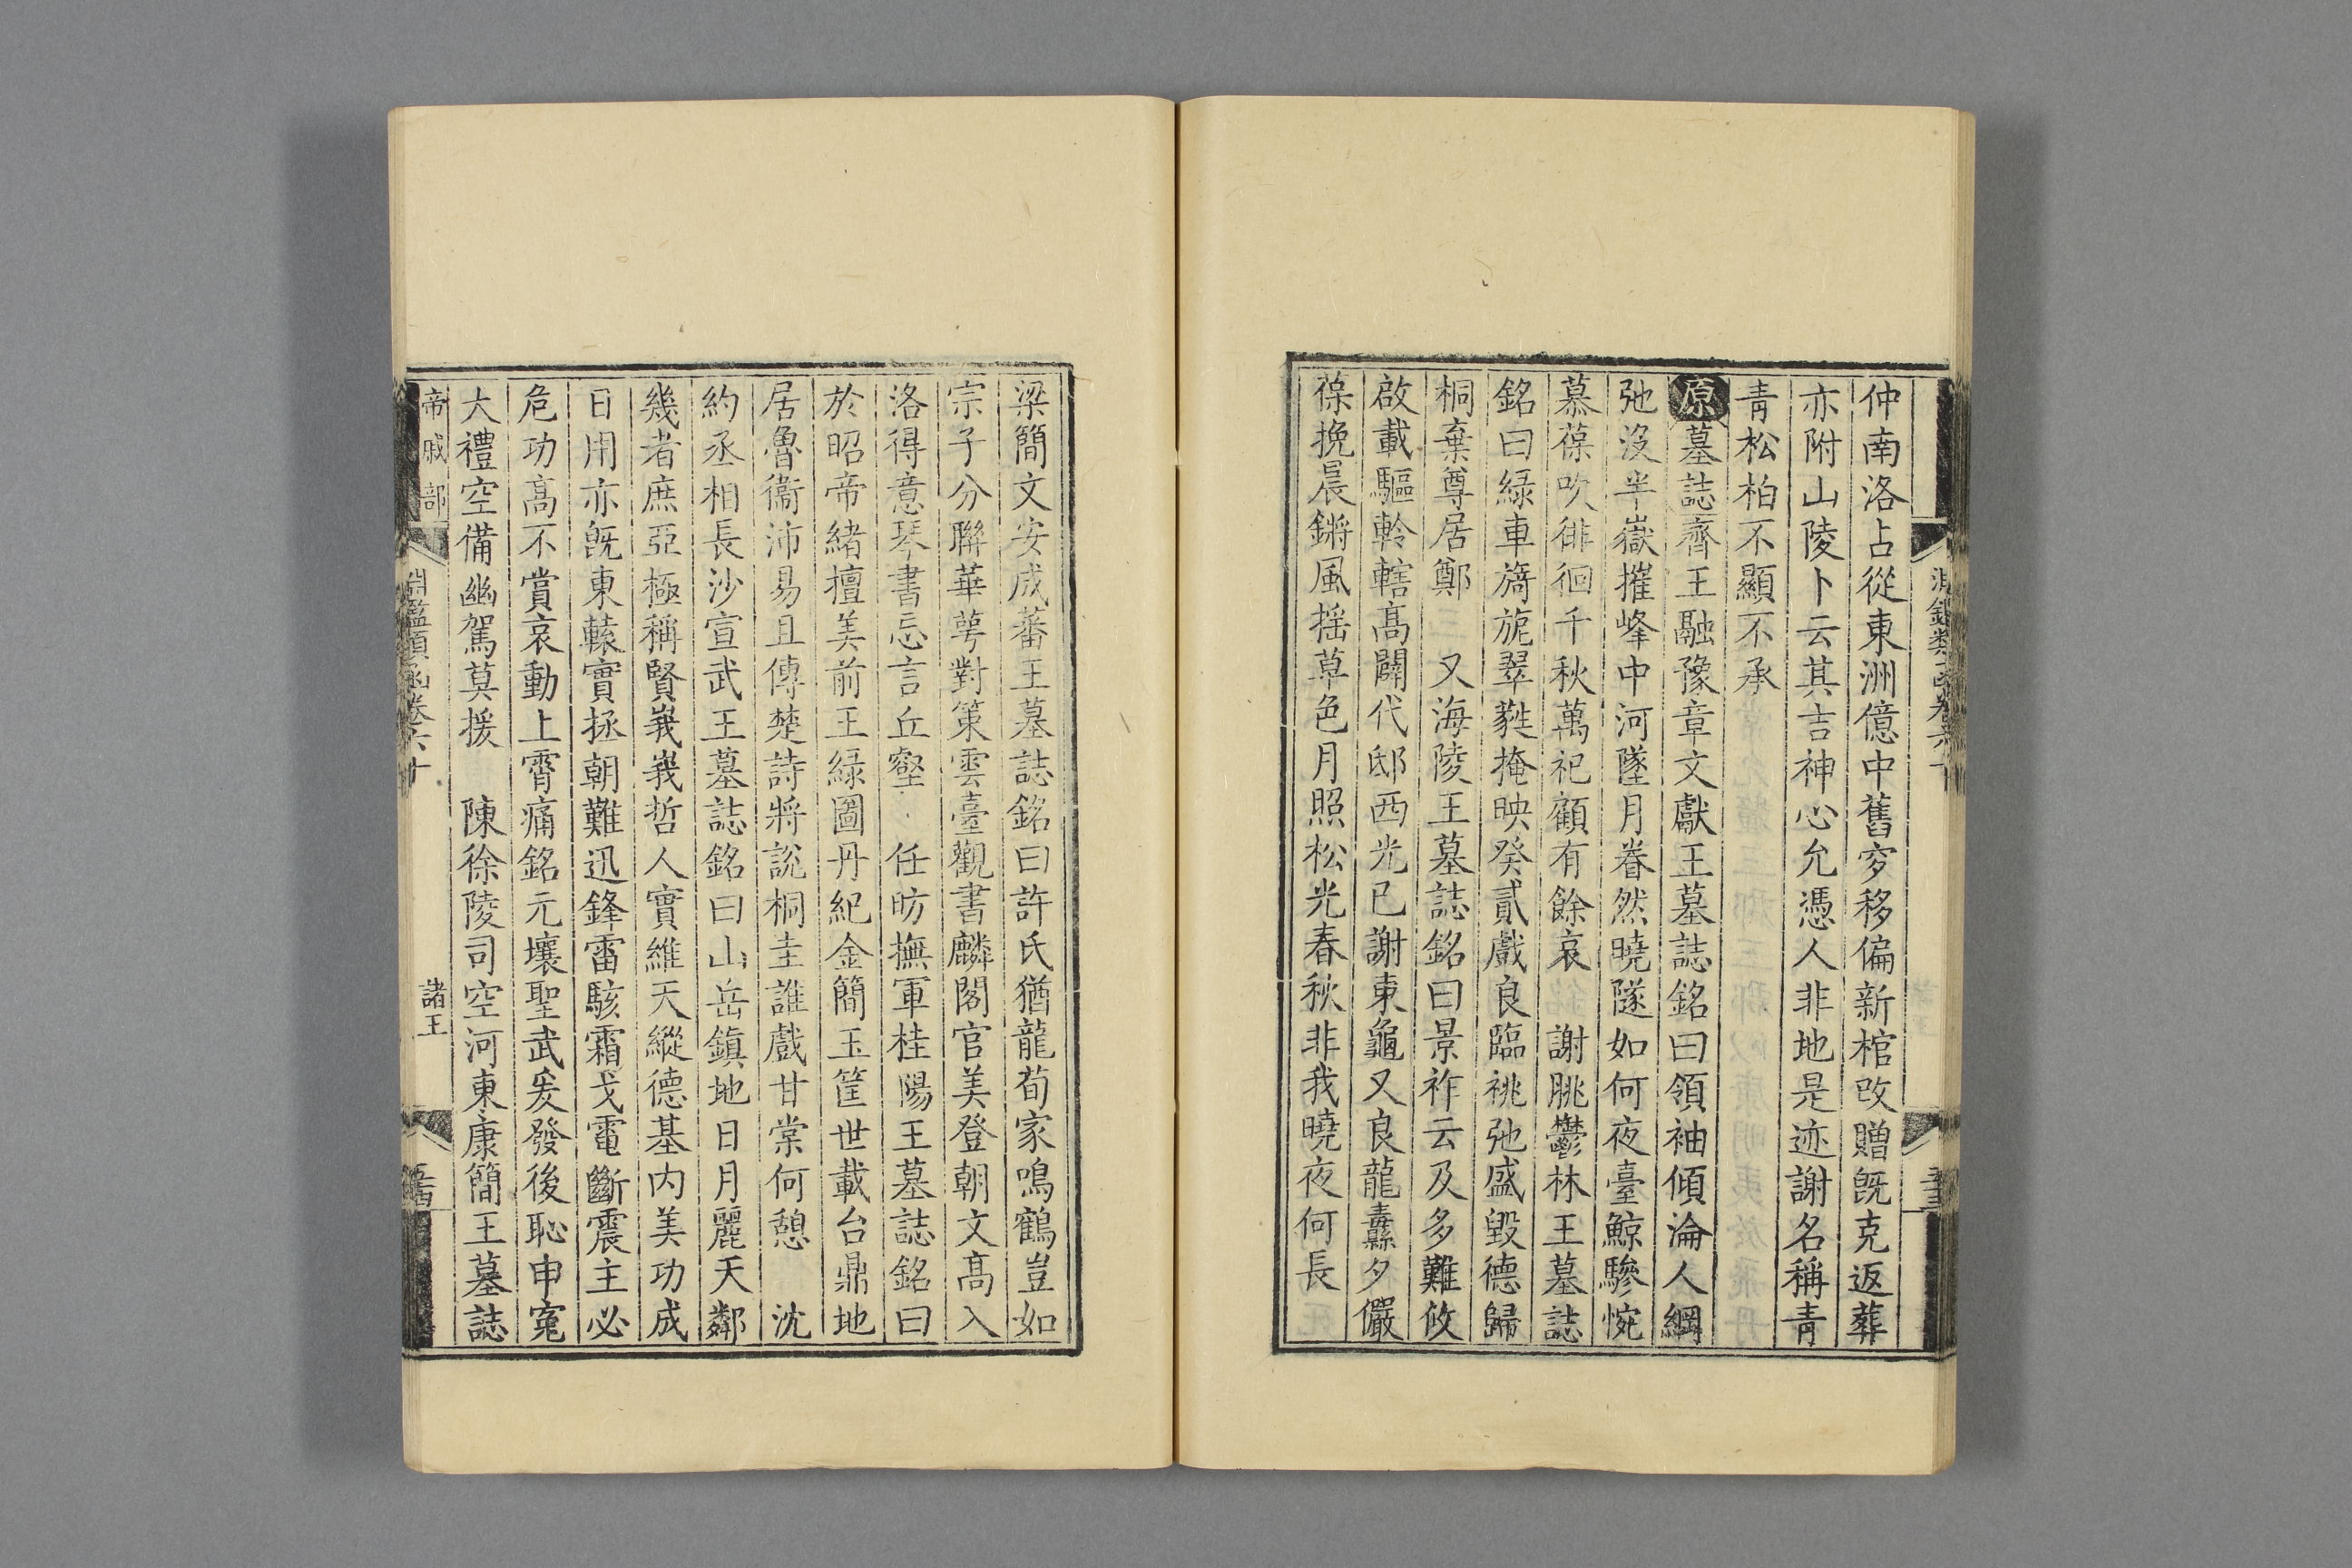 仲南洛占從東洲億中舊穸移偏新棺改贈旣克返葬
亦附山陵卜云其吉神心允憑人非地是迹謝名稱青
青松柏不顯不承
原墓誌齊王融豫章文獻王墓誌銘曰領袖傾淪人綱
弛沒半嶽摧峰中河墜月眷然曉隧如何夜臺鯨驂惋
慕葆吹徘徊千秋萬祀顧有餘哀 謝朓鬱林王墓誌
銘曰綠車旖旎翠蕤掩映癸貳戲良臨祧弛盛毀德歸
桐棄尊居鄭 又海陵王墓誌銘曰景祚云及多難攸
啟載驅軨轄高闢代邸西光已謝東龜又良龍纛夕儼
葆挽晨鏘風搖草色月照松光春秋非我曉夜何長
梁簡文安成蕃王墓誌銘曰許氏猶龍荀家鳴鶴豈如
宗子分聯華萼對策雲臺觀書麟閣官美登朝文高入
洛得意琴書忘言丘壑 任昉撫軍桂陽王墓誌銘曰
於昭帝緒擅美前王綠圖丹紀金簡玉筐世載台鼎地
居魯衞沛易且傳楚詩將說桐圭誰戲甘棠何憩 沈
約丞相長沙宣武王墓誌銘曰山岳鎮地日月麗天鄰
幾者庶亞極稱賢峩峩哲人實維天縱德基内美功成
日用亦旣東轅實拯朝難迅鋒雷駭霜戈電斷震主必
危功高不賞哀動上霄痛銘元壤聖武爰發後恥申寃
大禮空備幽駕莫援 陳徐陵司空河東康簡王墓誌
帝戚部 淵鑑類函卷六十 諸王